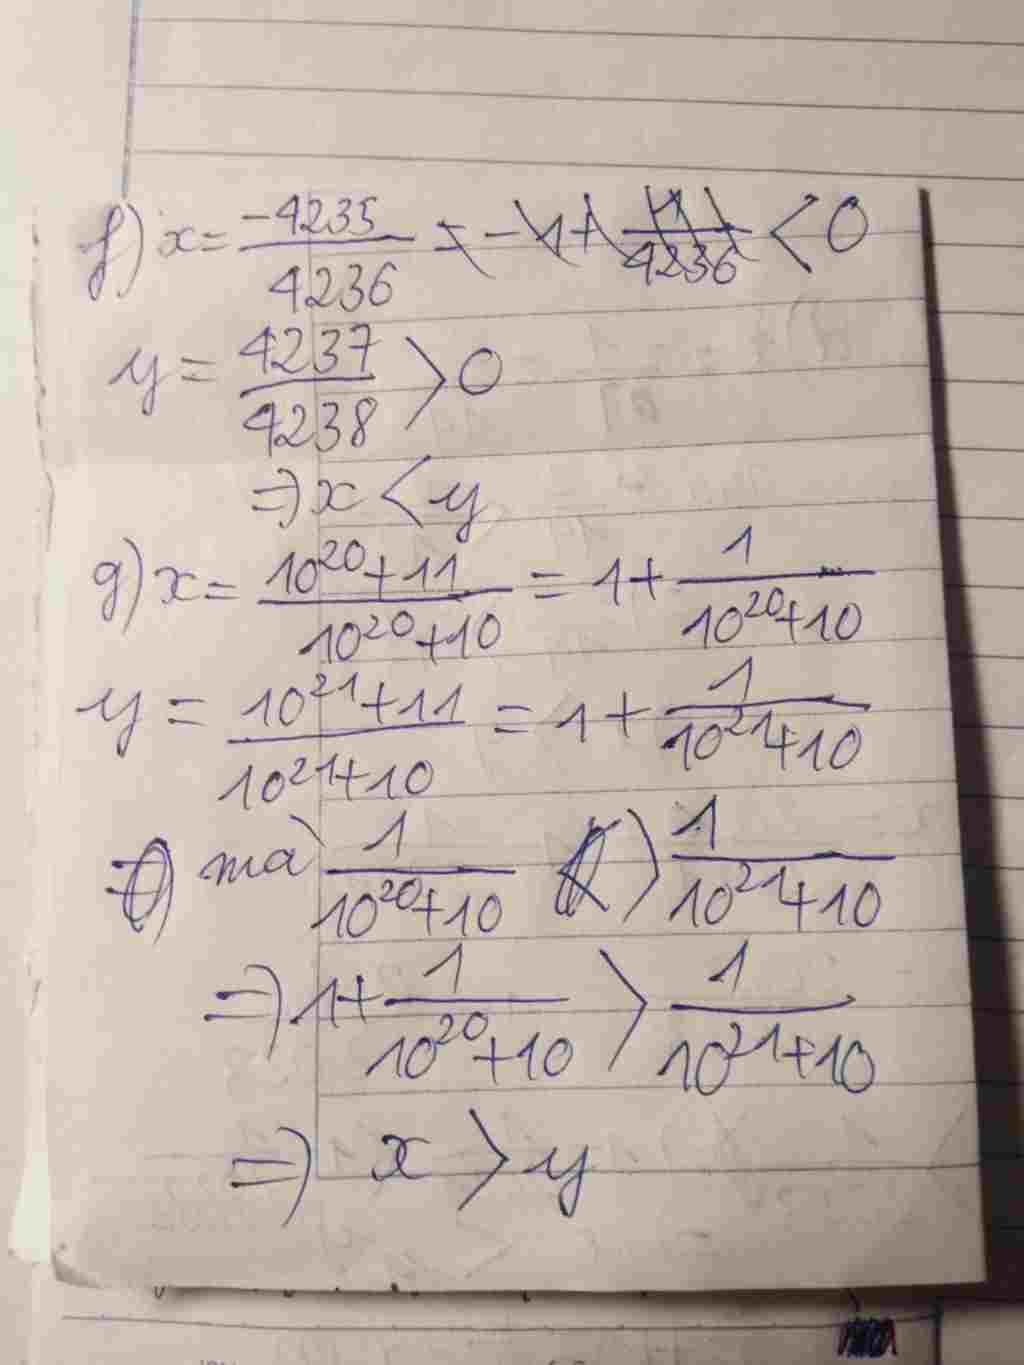 f) x = -4235/4236 = -1 + 1/4236 < 0
y = 4237/4238 > 0
=> x < y
g) x = 10^20+11/10^20+10 = 1 + 1/10^20+10
y = 10^21+11/10^21+10 = 1 + 1/10^21+10
=> mà 1/10^20+10 > 1/10^21+10
=> 1 + 1/10^20+10 > 1/10^21+10
=> x > y